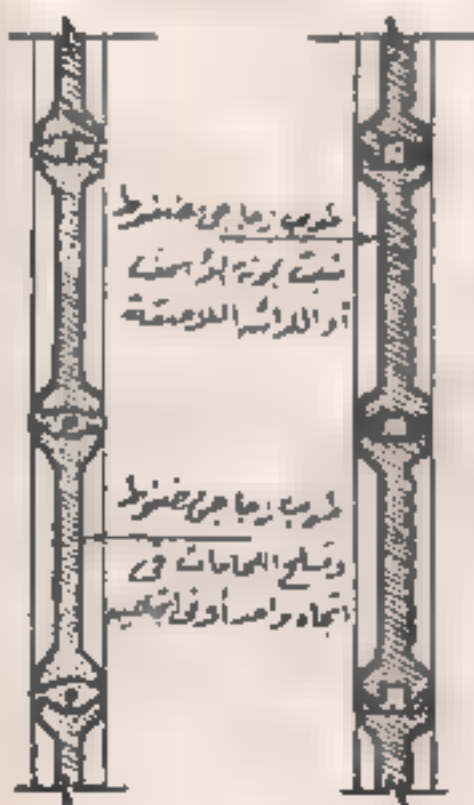 طوب زجاجى مضغوط
مثبت بمونة الأسمنت
أو اللدائن اللاصقة
طوب زجاجى مضغوط
وتسلح اللحامات فى
اتجاه واحد أو فى اتجاهين